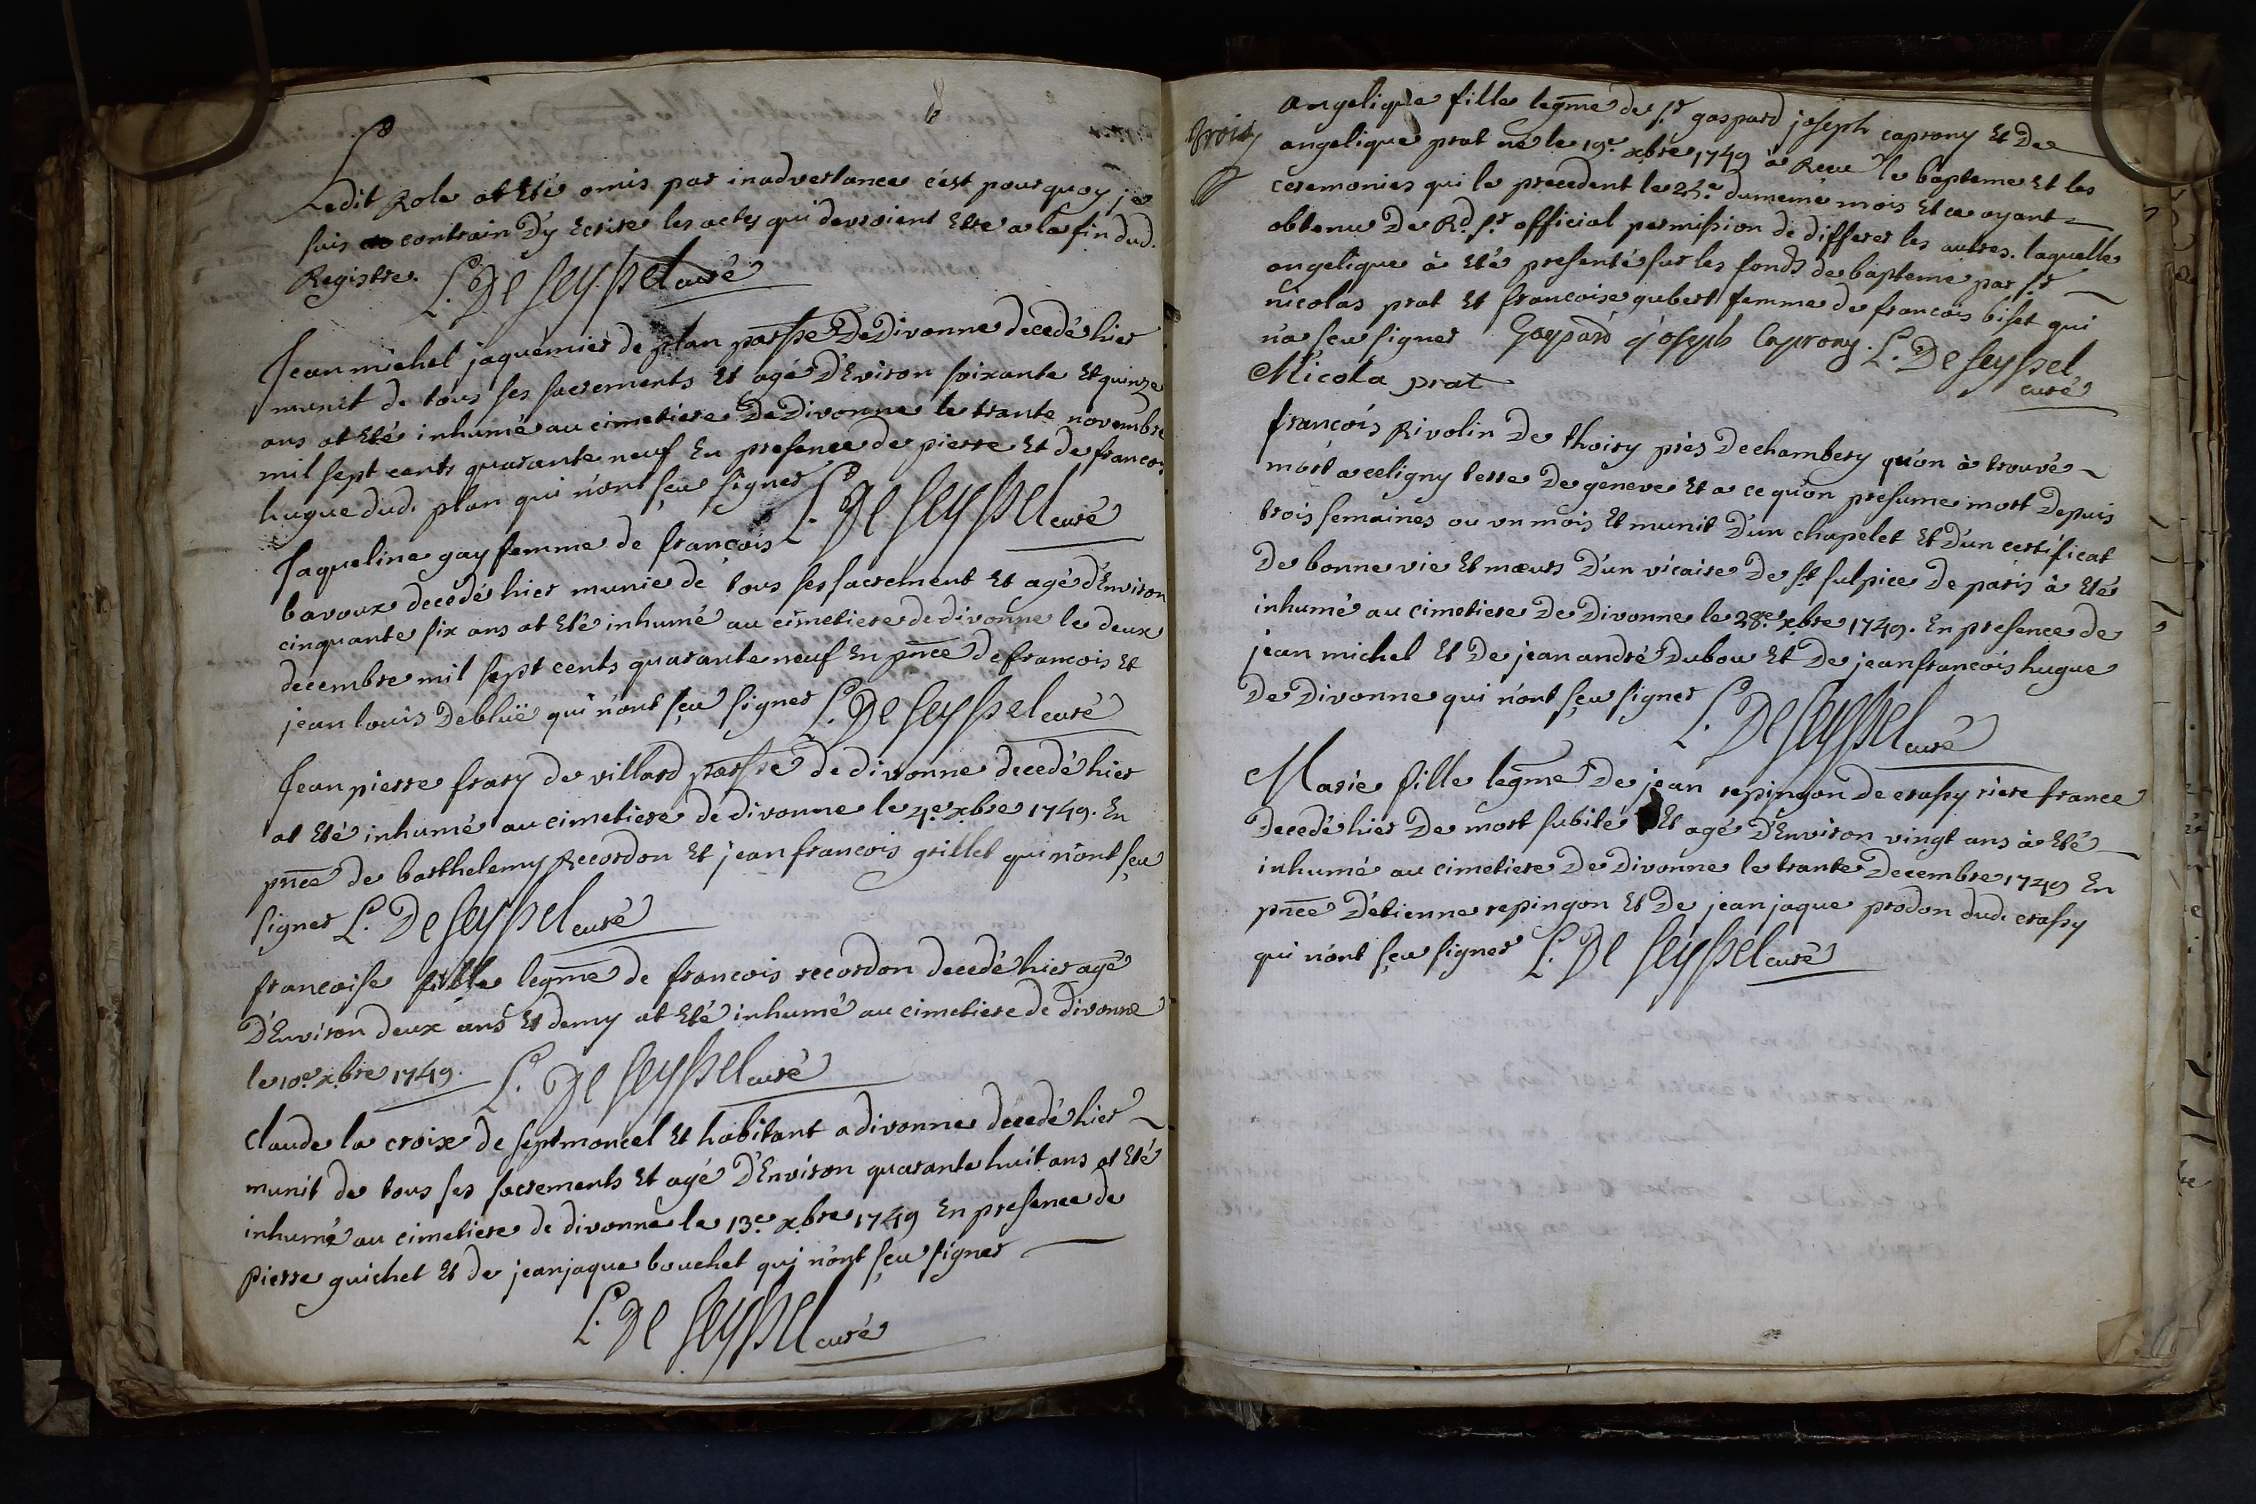 Ledit Role at Eté omis par inadvertance c'est pourquoy je
suis contrain D'y Ecrire les actes qui devroient Etre a la fin dud.
Registre. L. De Seyssel curé
Jean michel jaquemier de plan parsse De Divonne decedé hier
munit de tous ses sacrements Et agé D'Environ soixante Et quinze
ans at Eté inhumé au cimetiere De Divonne le trante novembre
mil sept cents quarante neuf En presence de pierre Et de francois
hugue dud. plan qui n'ont sçeu signer L. De Seyssel curé
Jaqueline gay femme de francois
bavoux decedé hier munie de tous ses sacrement Et agé d'Environ
cinquante six ans at Eté inhumé au cimetiere de divonne le deux
decembre mil sept cents quarante neuf En pnce de francois Et
jean louis Debluë qui n'ont sçeu signer L. De Seyssel curé
Jean pierre frary de villard parsse de divonne decedé hier
at Eté inhumé au cimetiere de divonne le 4e xbre 1749. En
pnce de barthelemy Recordon Et jean francois grillet qui n'ont sçeu
signer L. De Seyssel curé
francoise fille legme de francois recordon decedé hier agé
D'Environ deux ans Et demy at Eté inhumé au cimetiere de divonne
le 10e xbre 1749. L. De Seyssel curé
Claude la croix de septmoncel Et habitant a divonne decedé hier
munit de tous ses sacrements Et agé D'Environ quarante huit ans at Eté
inhumé au cimetiere de divonne le 13e xbre 1749 En presence de
pierre guichet Et de jean jaque bouchet qui n'ont sçeu signer
L. De Seyssel curé
Angelique fille legme de sr gaspard joseph caprony Et De
angelique prat né le 19e xbre 1749 à Receu le bapteme Et les
ceremonies qui le precedent le dumeme mois Et ce ayant
obtenu De Rd sr official permission de differer les autres. laquelle
angelique à Eté presenté sur les fonds de bapteme par sr
nicolas prat Et francoise gubert femme de francois biset qui
n'a sçeu signer Gaspard joseph Caprony. L. De Seyssel
curé
Nicola prat
francois Rivolin De thoiry près De chambery qu'on à trouvé
mort a celigny terre De geneve Et a ce qu'on presume mort Depuis
trois semaines ou un mois Et munit D'un chapelet Et D'un certificat
De bonne vie Et mœurs D'un vicaire De st sulpice De paris à Eté
inhumé au cimetiere De Divonne le 28e xbre 1749. En presence de
jean michel Et De jean andré Dubou Et De jean francois hugue
De Divonne qui n'ont sçeu signer L. De Seyssel curé
Marie fille legme De jean repingon De crassy riere france
Decedé hier De mort subite Et agé D'Environ vingt ans à Eté
inhumé au cimetiere De Divonne le trante Decembre 1749 En
pnce D'etienne repingon Et De jean jaque prodon dud. crassy
qui n'ont sçeu signer L. De Seyssel curé